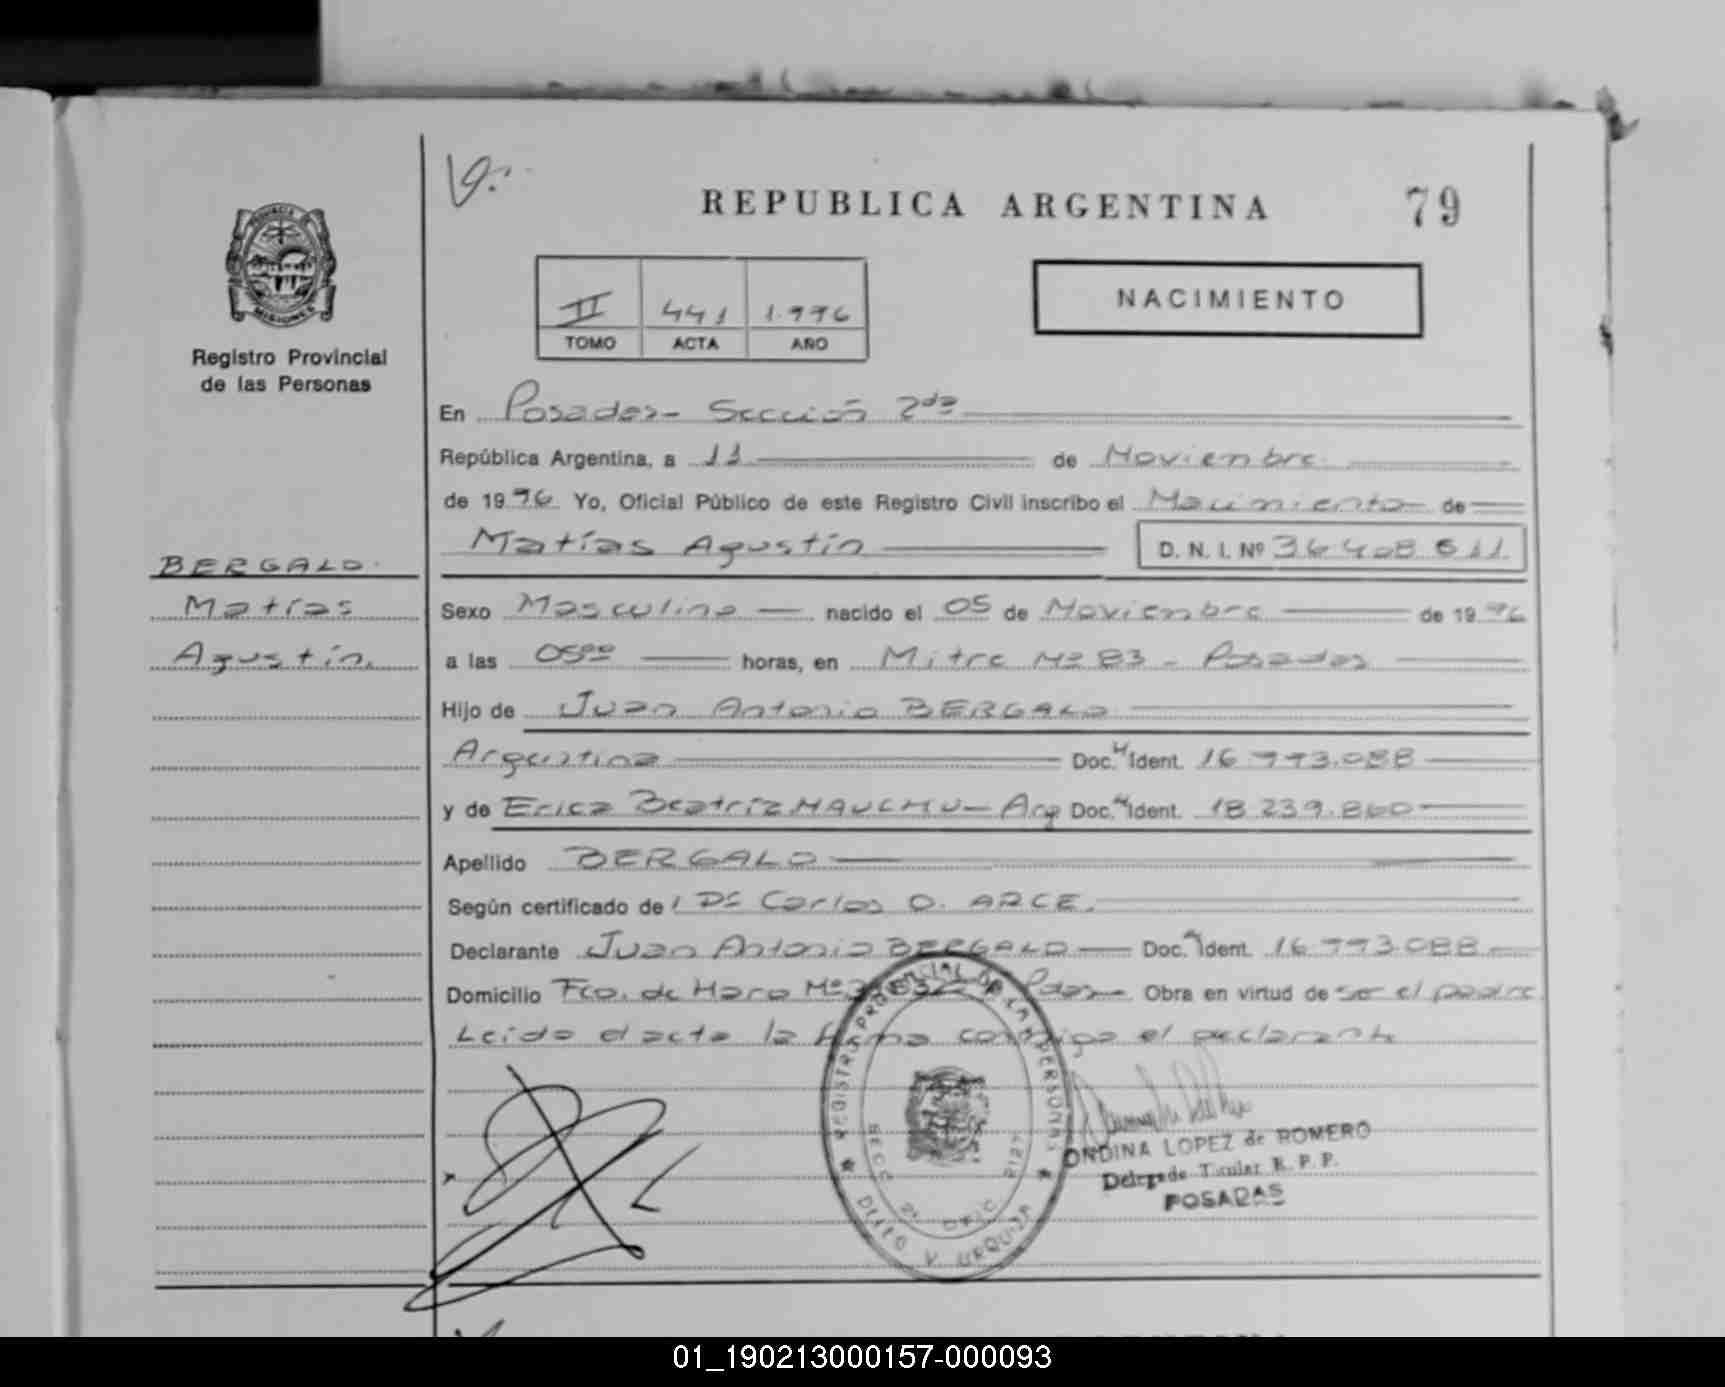 79
REPUBLICA ARGENTINA
PROVINCIA DE
MISIONES
Registro Provincial
de las Personas
II 441 1.996
TOMO ACTA AÑO
NACIMIENTO
En Posadas- Sección 2da
República Argentina, a 11 de Noviembre.
de 1996 Yo, Oficial Público de este Registro Civil inscribo el Nacimiento de
Matías Agustín D. N. I. Nº
BERGALO.
Matías
Agustín.
Sexo Masculino nacido el 05 de Noviembre de 1996
a las 05ºº horas, en Mitre Nº 83 - Posadas
Hijo de Juan Antonio BERGALO
Argentina Doc. Ident. 16.993.088
y de Erica Beatriz Arg Doc. Ident. 18.239.860
Apellido BERGALO
Según certificado de Dr Carlos O. ARCE.
Declarante Juan Antonio BERGALO Doc. Ident. 16.993.088
Domicilio Fco. de Haro Nº Pdas- Obra en virtud de ser el padre
Leida el acta la firma conmigo el declarante
REGISTRO PROVINCIAL DE LAS PERSONAS
SECC 2ª OFIC
DELEG V. URQUIZA
ONDINA LOPEZ de ROMERO
Delegada Titular R. P. P.
POSADAS
01_190213000157-000093